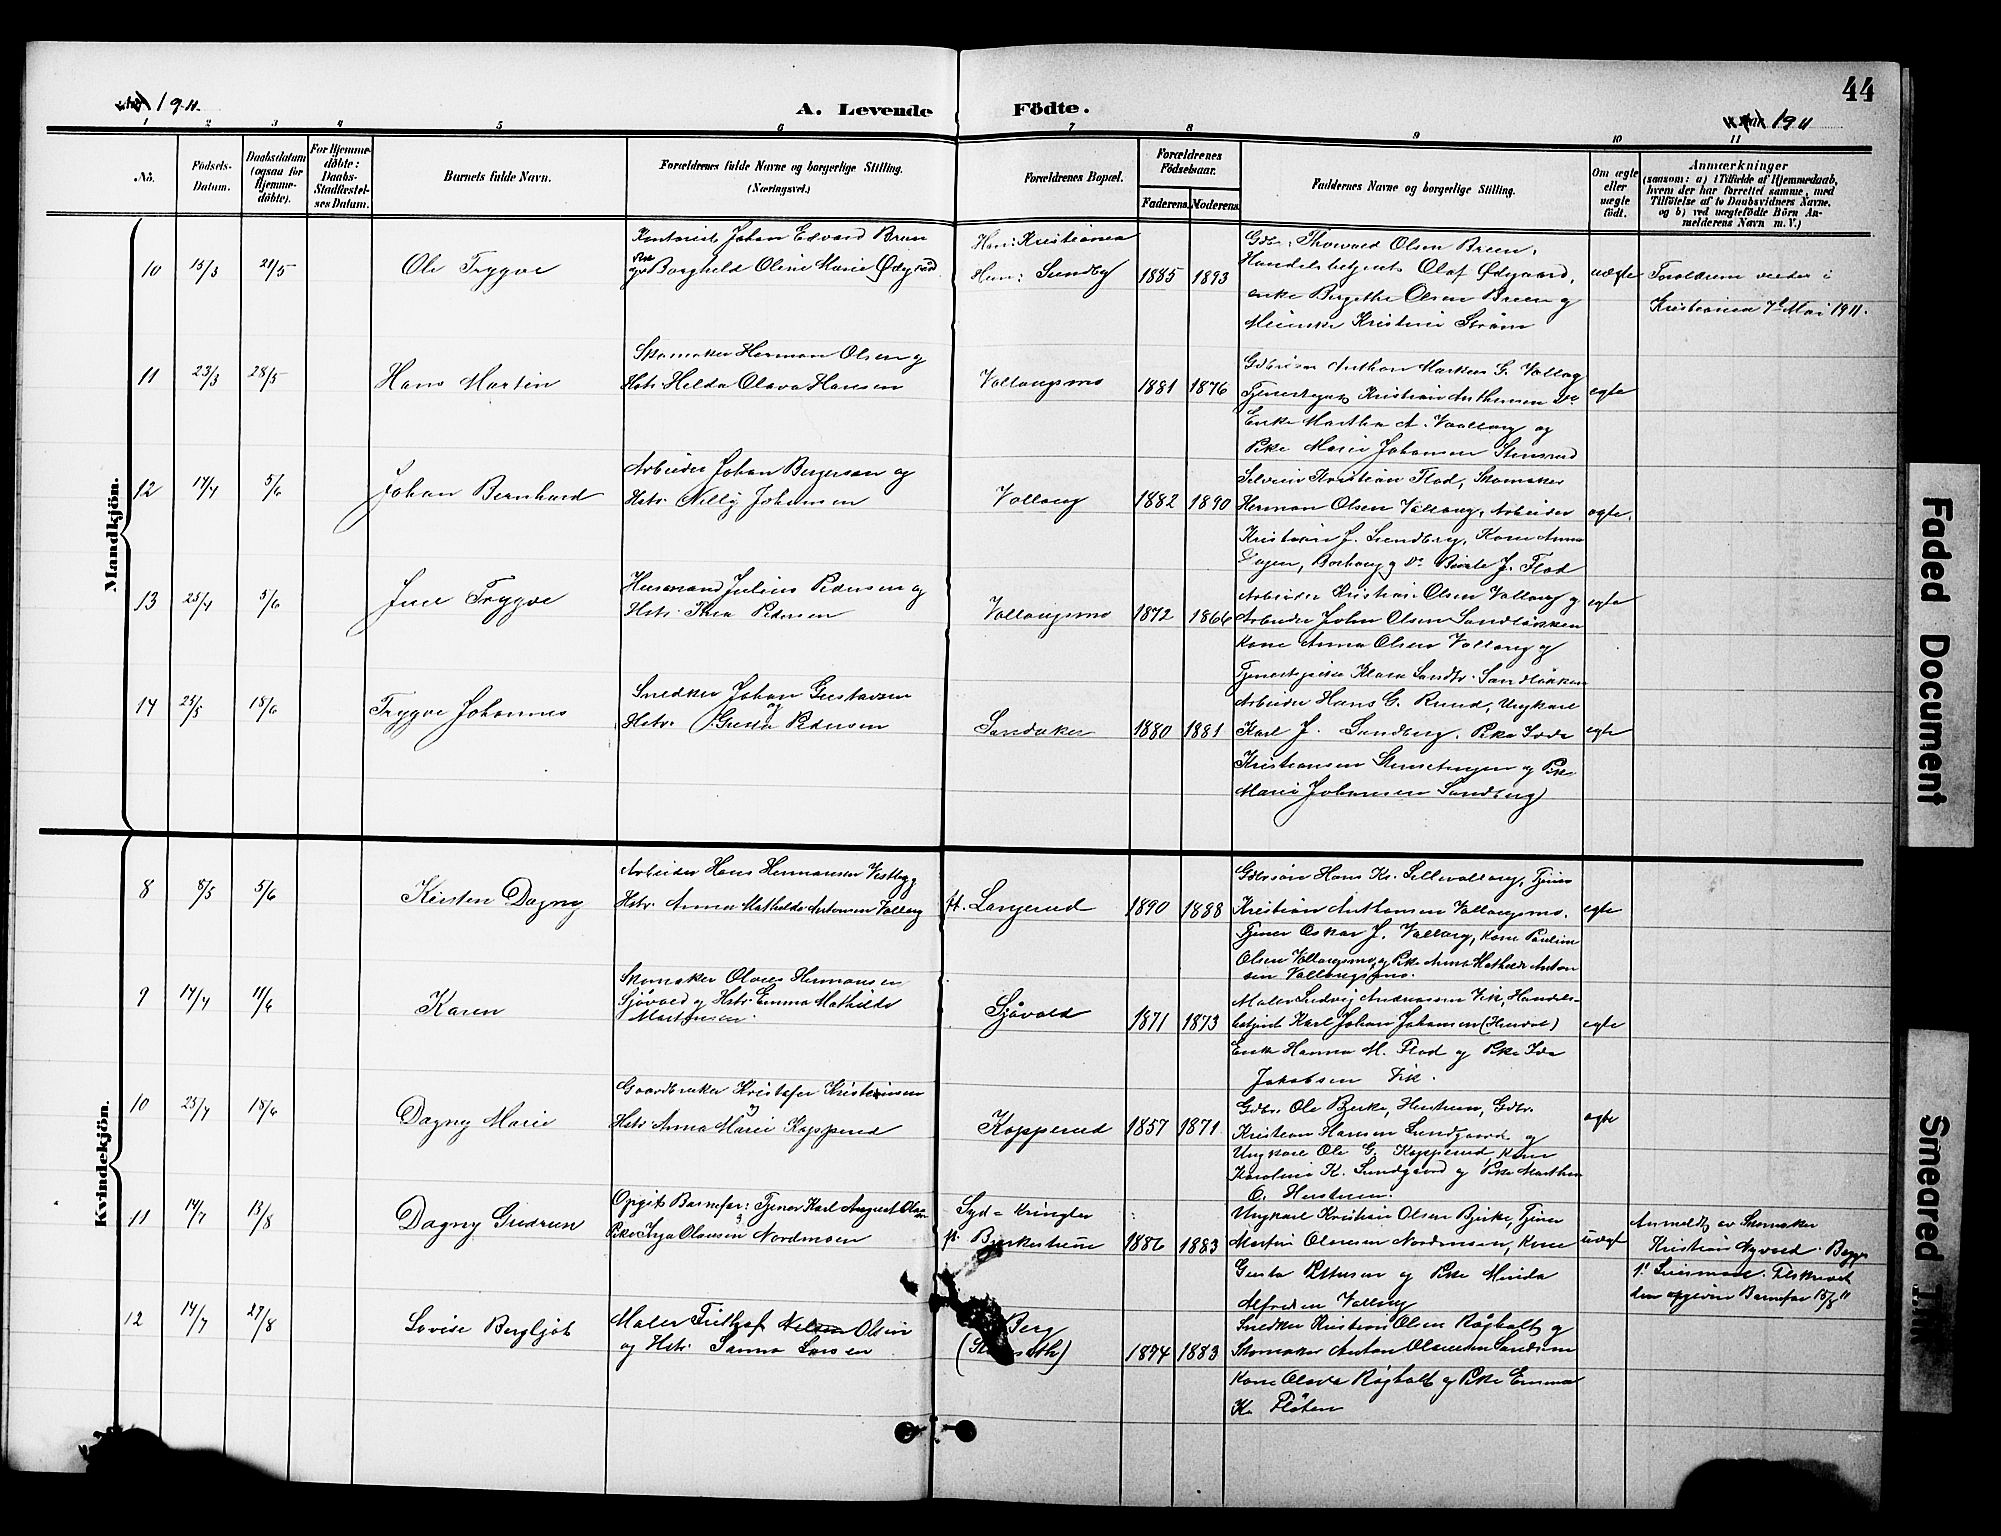 44
1911.
A. Levende Födte.
1911
1 2 3 4 5 6 7 8 9 10 11
No.
Födsels-
Datum.
Daabsdatum
(ogsaa for
Hjemme-
döbte).
For Hjemme-
döbte:
Daabs-
Stadfæstel-
ses Datum.
Barnets fulde Navn.
Forældrenes fulde Navne og borgerlige Stilling.
(Næringsvei.)
Forældrenes Bopæl.
Forældrenes
Födselsaar.
Faderens. Moderens.
Faddernes Navne og borgerlige Stilling.
Om ægte
eller
uægte
födt.
Anmærkninger
(saasom: a) i Tilfælde af Hjemmedaab,
hvem der har forrettet samme, med
Tilföielse af to Daabsvidners Navne,
og b) ved uægtefödte Börn An-
melderens Navn m. V.)
Mandkjön.
10 13/3 21/5
Ole Trygve
Kontorist Johan Edvard Breen
Pike
og Borghild Oline Marie Ødegård
Han: Kristiania
Hun: Sundby
1885 1893
Gdbr. Thorvald Olsen Breen,
Handelsbetjent Olaf Ødegaard,
enke Bergithe Olsen Breen og
Kristine Strøm
uægte
Forældrene viedes i
Kristiania 7de Mai 1911.
11 23/3 28/5
Hans Martin
Skomaker Herman Olsen og
Hstr. Hilda Olava Hansen
Vollaugsmo
1881 1876
Gdbrsøn Anthon Markus G. Vollaug
Tjenestegut Kristian Anthonsen Do
Enke Martha A. Vollaug og
Pike Marie Johansen Stensrud
egte
12 17/4 5/6
Johan Bernhard
Arbeider Johan Bergersen og
Hstr. Nelly Johansen
Vollaug
1882 1890
Selveier Kristian Flod, Skomaker
Herman Olsen Vollaug, Arbeider
Kristian J. Sundberg, Kone Anna
J. Flod
egte.
13 25/4 5/6
Trygve
Husmand Julius Pedersen og
Hstr. Thea Pedersen
Vollaugsmo
1872 1866
Arbeider Kristian Olsen Vollaug og
Arbeider John Olsen Sandløkken
Kone Anna Olsen Vollaug og
Tjenestepike Klara Sandløkken
egte
14 25/5 18/6
Trygve Johannes
Snedker Johan Gustavsen
og
Hstr. Gusta Pedersen
Sandaker
1880 1881
Arbeider Hans G. Rund, Ungkarl
Karl J. Sandberg, Pike
Kristiansen og Pike
Marie Johansen Sandberg
egte
Kvindekjön.
8 8/5 5/6
Kirsten Dagny
Arbeider Hans Hermansen Vestby og
Hstr. Anna Mathilde Antonsen Vollaug
pt. Langerud
1890 1888
Gdbrsøn Hans Kr. Lillevollaug, Tjener
Kristian Anthonsen Vollaugsmo,
Tjener Oskar J. Vollaug, Kone Pauline
Olsen Vollaugsmo og Pike Anna Mathilde Anton
sen Vollaugsmo.
egte
9 17/4 11/6
Karen
Skomaker Olaves Hermansen
Sjøvold og Hstr. Emma Mathilde
Martinsen.
Sjøvold
1871 1873
Maler Ludvig Andreassen Vik, Handels-
betjent Karl Johan Johansen
Enke Hanna M. Flod og Pike Ida
Jakobsen Vik.
egte
10 23/4 18/6
Dagny Marie
Gaardbruker Kristofer Kristiansen
og
Hstr. Anna Marie Kopperud
Kopperud
1857 1871
Gdbr. Ole Bjerke, Gdbr.
Kristian Hansen Sundgaard og
Ungkarl Ole G. Kopperud, Kone
Karoline K. Sundgaard og Pike Marthea
O.
egte
11 14/7 13/8
Dagny Gudrun
Opgit Barnefar: Tjener Karl August Olsen
og
Pike Inga Olausen Nordensen
Syd-Kringler
pt. Bjerkestuen
1886 1883
Ungkarl Kristian Olsen Bjerke, Tjener
Martin Olausen Nordensen, Kone
Gusta Pettersen og Pike Minda
Alfredsen Vollaug
uægt
Anmeldt av Skomaker
Kristian Nyvold
Tilskrevet
den opgivne Barnefar 15/8 11
12 14/7 27/8
Lovise Bergljot
Maler Fridthjof Olsen
og Hstr. Sanna Larsen
Berg
1874 1883
Snedker Kristian Olsen Røgholt og
Skomaker Anton Olausen
Kone Olava Røgholt og Pike Emma
K. Fløten
Faded Document
Smeared Ink